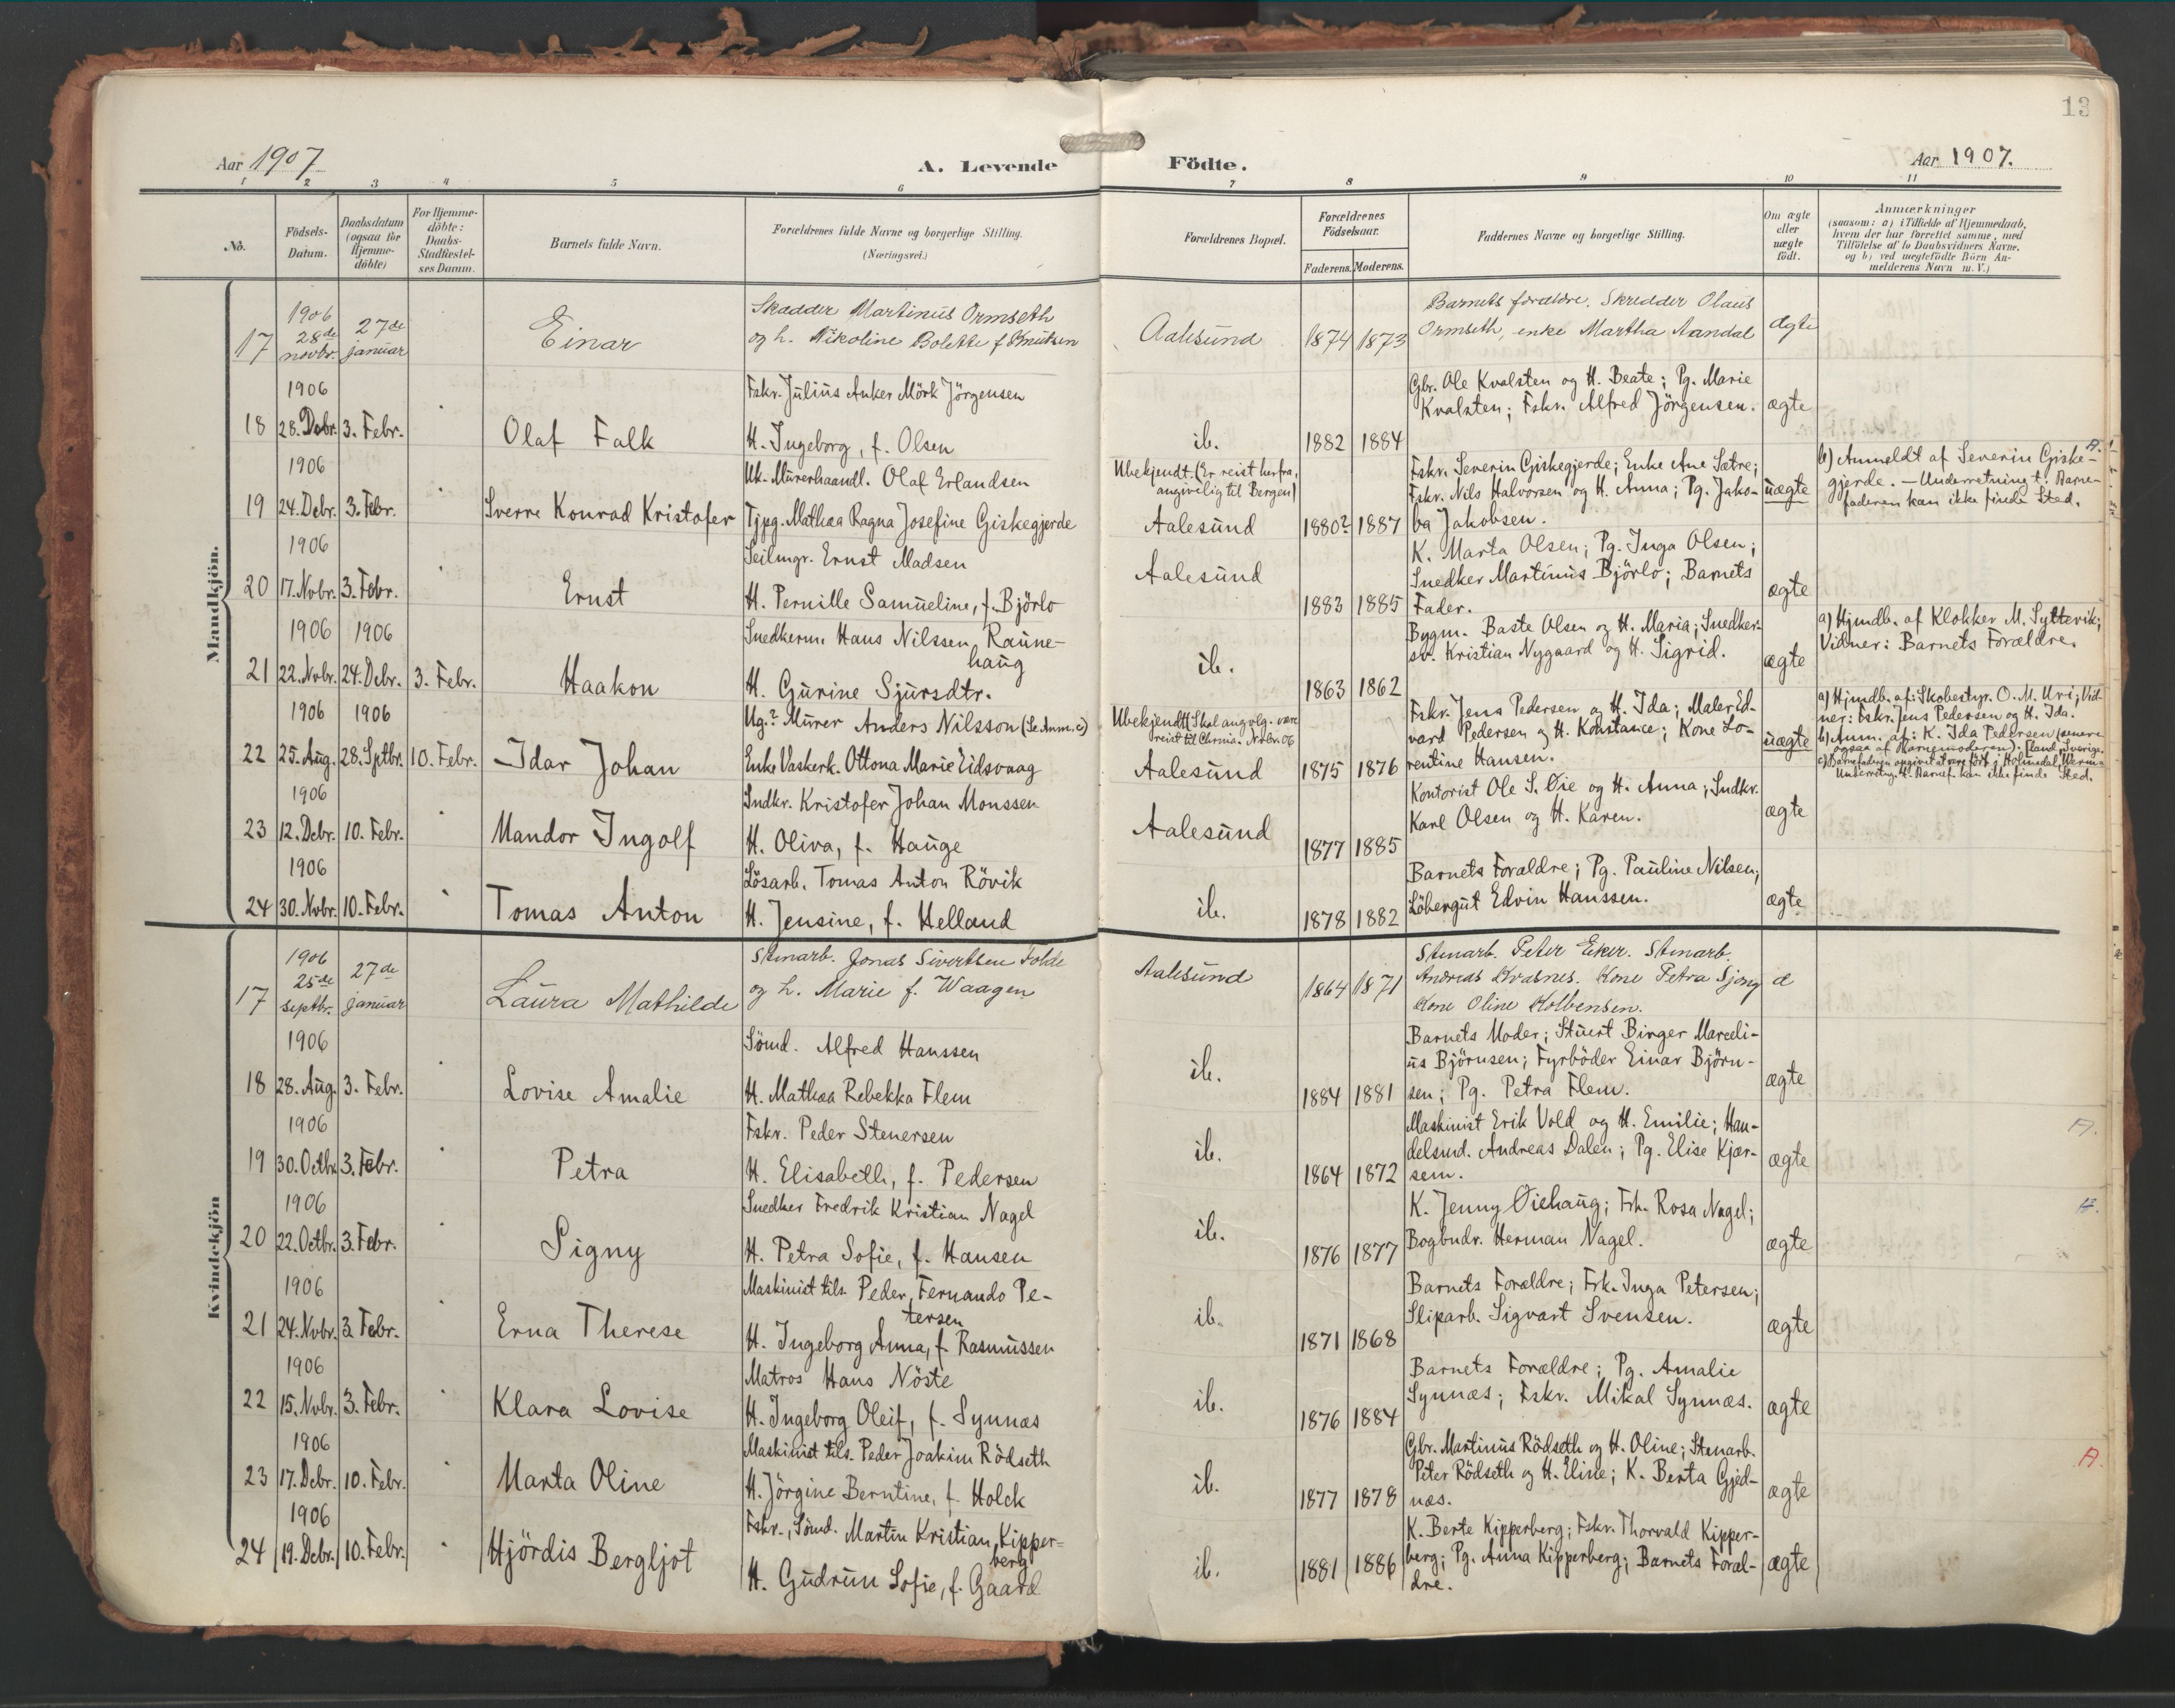 13
Aar 1907
A. Levende Födte.
Aar 1907.
1 2 3 4 5 6 7 8 9 10 11
No.
Födsels-Datum.
Daabsdatum (ogsaa for Hjemme-döbte)
For Hjemme-döbte: Daabs-Stadfæstel-ses Datum.
Barnets fulde Navn.
Forældrenes fulde Navne og borgerlige Stilling. (Næringsvei.)
Forældrenes Bopæl.
Forældrenes Födselsaar.
Faderens. Moderens.
Faddernes Navne og borgerlige Stilling.
Om ægte eller uægte födt.
Anmærkninger
(saasom: a) i Tilfælde af Hjemmedaab,
hvem der har forrettet samme, med
Tilföielse af to Daabsvidners Navne,
og b) ved uægtefödte Börn An-
melderens Navn m. V.)
Mandkjön.
17 1906 28de novbr. 27de januar Einar
Skrædder Martinus Ormseth
og h. Nikoline Bolette f. Knutsen
Aalesund 1874 1873
Barnets forældre. Skrædder Olaus
Ormseth, enke Martha Aandal
ægte
18 1906 28. Debr. 3. Febr. Olaf Falk
Fskr. Julius Anker Mörk Jörgensen
H. Ingeborg, f. Olsen
ib. 1882 1884
Gbr. Ole Kvalsten og H. Beate; Pg. Marie
Kvalsten; Fskr. Alfred Jörgensen.
ægte
19 1906 24. Debr. 3. Febr. Sverre Konrad Kristofer
Uk. Murerhaandl. Olaf Erlandsen
Tjpg. Mathea Ragna Josefine Giskegjerde
Ubekjendt. (Er reist herfra,
angivelig til Bergen)
Aalesund 1880? 1887
Fskr. Severin Giskegjerde; Enke Ane Sætre;
Fskr. Nils Halvorsen og H. Anna; Pg. Jako-
ba Jakobsen.
uægte
b) Anmeldt af Severin Giske-
gjerde. — Underretning t. Barne-
faderen kan ikke finde Sted.
20 1906 17. Novbr. 3. Febr. Ernst
Seilmgr. Ernst Madsen
H. Pernille Samueline, f. Björlo
Aalesund 1883 1885
K. Marta Olsen; Pg. Inga Olsen;
Snedker Martinus Björlo; Barnets
Fader.
ægte
21 1906 22. Novbr. 1906 24. Debr. 3. Febr. Haakon
Snedkerm. Hans Nilssen Raune-
haug
H. Gurine Sjursdtr.
ib. 1863 1862
Bygm. Baste Olsen og H. Maria; Snedker-
sv. Kristian Nygaard og H. Sigrid.
ægte
a) Hjmdb. af Klokker M. Syltevik;
Vidner: Barnets Forældre.
22 1906 25. Aug. 1906 28. Sptbr. 10. Febr. Idar Johan
Ug.? Murer Anders Nilsson (Se Anm. c)
Enke Vaskerk. Ottona Marie Eidsvaag
Ubekjendt (Skal angvlg. være
reist til Chrnia. Novbr. 06
Aalesund 1875 1876
Fskr. Jens Pedersen og H. Ida; Maler Ed-
vard Pedersen og H. Konstance; Kone Lo-
rentine Hansen.
uægte
a) Hjmdb. af: Skobestyr. O. M. Uri; Vid-
ner: Fskr. Jens Pedersen og H. Ida.
b) Anm. af: K. Ida Pedersen (senere
ogsaa af Barnemoderen).
c) Barnefaderen angivet at være född i Holmedal, Werm-
land, Sverige.
Underretng. t. Barnef. kan ikke finde Sted.
23 1906 12. Debr. 10. Febr. Mandor Ingolf
Sndkr. Kristofer Johan Monssen
H. Oliva, f. Hauge
Aalesund 1877 1885
Kontorist Ole S. Öie og H. Anna; Sndkr.
Karl Olsen og H. Karen.
ægte
24 1906 30. Novbr. 10. Febr. Tomas Anton
Lösarb. Tomas Anton Rövik
H. Jensine, f. Helland
ib. 1878 1882
Barnets Forældre; Pg. Pauline Nilsen;
Löbergut Edvin Hanssen.
ægte
Kvindekjön
17 1906 25de septbr. 27de januar Laura Mathilde
Stenarb. Jonas Sivertsen Folde
og h. Marie f. Waagen
Aalesund 1864 1871
Stenarb. Peter Eker. Stenarb.
Andreas Kvasnes. Kone Petra Sjong
Kone Oline Kolbensen.
æ
18 1906 28. Aug. 3. Febr. Lovise Amalie
Sömd. Alfred Hanssen
H. Mathea Rebekka Flem
ib. 1884 1881
Barnets Moder; Stuert Birger Marceli-
us Björnsen; Fyrböder Einar Björn-
sen; Pg. Petra Flem.
ægte
19 1906 30. Octbr. 3. Febr. Petra
Fskr. Peder Stenersen
H. Elisabeth, f. Pedersen
ib. 1864 1872
Maskinist Erik Vold og H. Emilie; Han-
delsmd. Andreas Dalen; Pg. Elise Kjær-
sem.
ægte
20 1906 22. Octbr. 3. Febr. Signy
Snedker Fredrik Kristian Nagel
H. Petra Sofie, f. Hansen
ib. 1876 1877
K. Jenny Öiehaug; Frk. Rosa Nagel;
Bogbndr. Herman Nagel.
ægte
21 1906 24. Novbr. 3. Febr. Erna Therese
Maskinist tils. Peder Fernando Pe-
tersen
H. Ingeborg Anna, f. Rasmussen
ib. 1871 1868
Barnets Forældre; Frk. Inga Petersen;
Sliparb. Sigvart Svensen.
ægte
22 1906 15. Novbr. 3. Febr. Klara Lovise
Matros Hans Nöste
H. Ingeborg Oleif, f. Synnæs
ib. 1876 1884
Barnets Forældre; Pg. Amalie
Synnæs; Fskr. Mikal Synnæs.
ægte
23 1906 17. Debr. 10. Febr. Marta Oline
Maskinist tils. Peder Joakim Rödseth
H. Jörgine Berntine, f. Holck
ib. 1877 1878
Gbr. Martinus Rödseth og H. Oline; Stenarb.
Peter Rödseth og H. Eline; K. Berta Gjed-
næs.
ægte
A.
24 1906 19. Debr. 10. Febr. Hjördis Bergljot
Fskr., Sömd. Martin Kristian Kipper-
berg
H. Gudrun Sofie, f. Gaard
ib. 1881 1886
K. Berte Kipperberg; Fskr. Thorvald Kipper-
berg; Pg. Anna Kipperberg; Barnets Foræl-
dre.
ægte